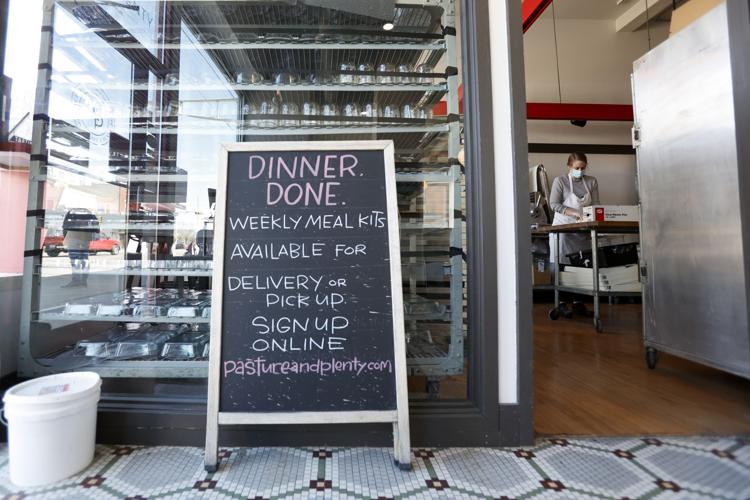 DINNER.
DONE.
WEEKLY MEAL KITS
AVAILABLE FOR
DELIVERY OR
PICK UP.
SIGN UP
ONLINE
pastureandplenty.com